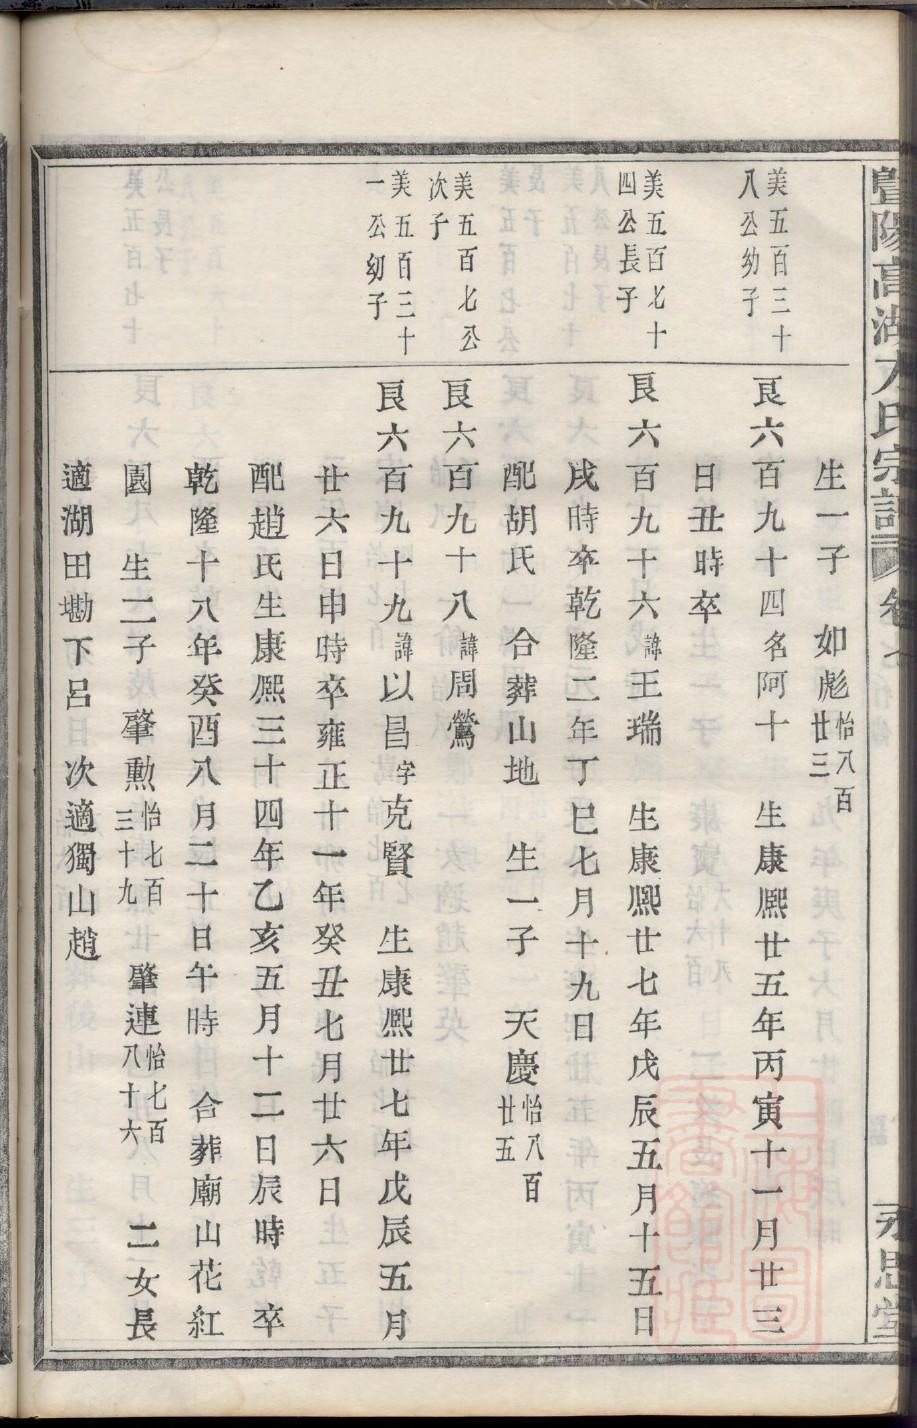 暨陽高湖方氏宗譜 卷七 永思堂
生一子 如彪怡八百廿三
美五百三十八公幼子
艮六百九十四名阿十 生康熈廿五年丙寅十一月廿三
日丑時卒
美五百七十四公長子
艮六百九十六諱王瑞 生康熈廿七年戊辰五月十五日
戌時卒乾隆二年丁巳七月十九日
配胡氏 合葬山地 生一子 天慶怡八百廿五
美五百七公次子
艮六百九十八諱周鶯
美五百三十一公幼子
艮六百九十九諱以昌字克賢 生康熈廿七年戊辰五月
廿六日申時卒雍正十一年癸丑七月廿六日
配趙氏生康熈三十四年乙亥五月十二日辰時卒
乾隆十八年癸酉八月二十日午時 合葬廟山花紅
園 生二子 肇勲怡七百三十九 肇連怡七百八十六 二女長
適湖田墈下呂 次適獨山趙